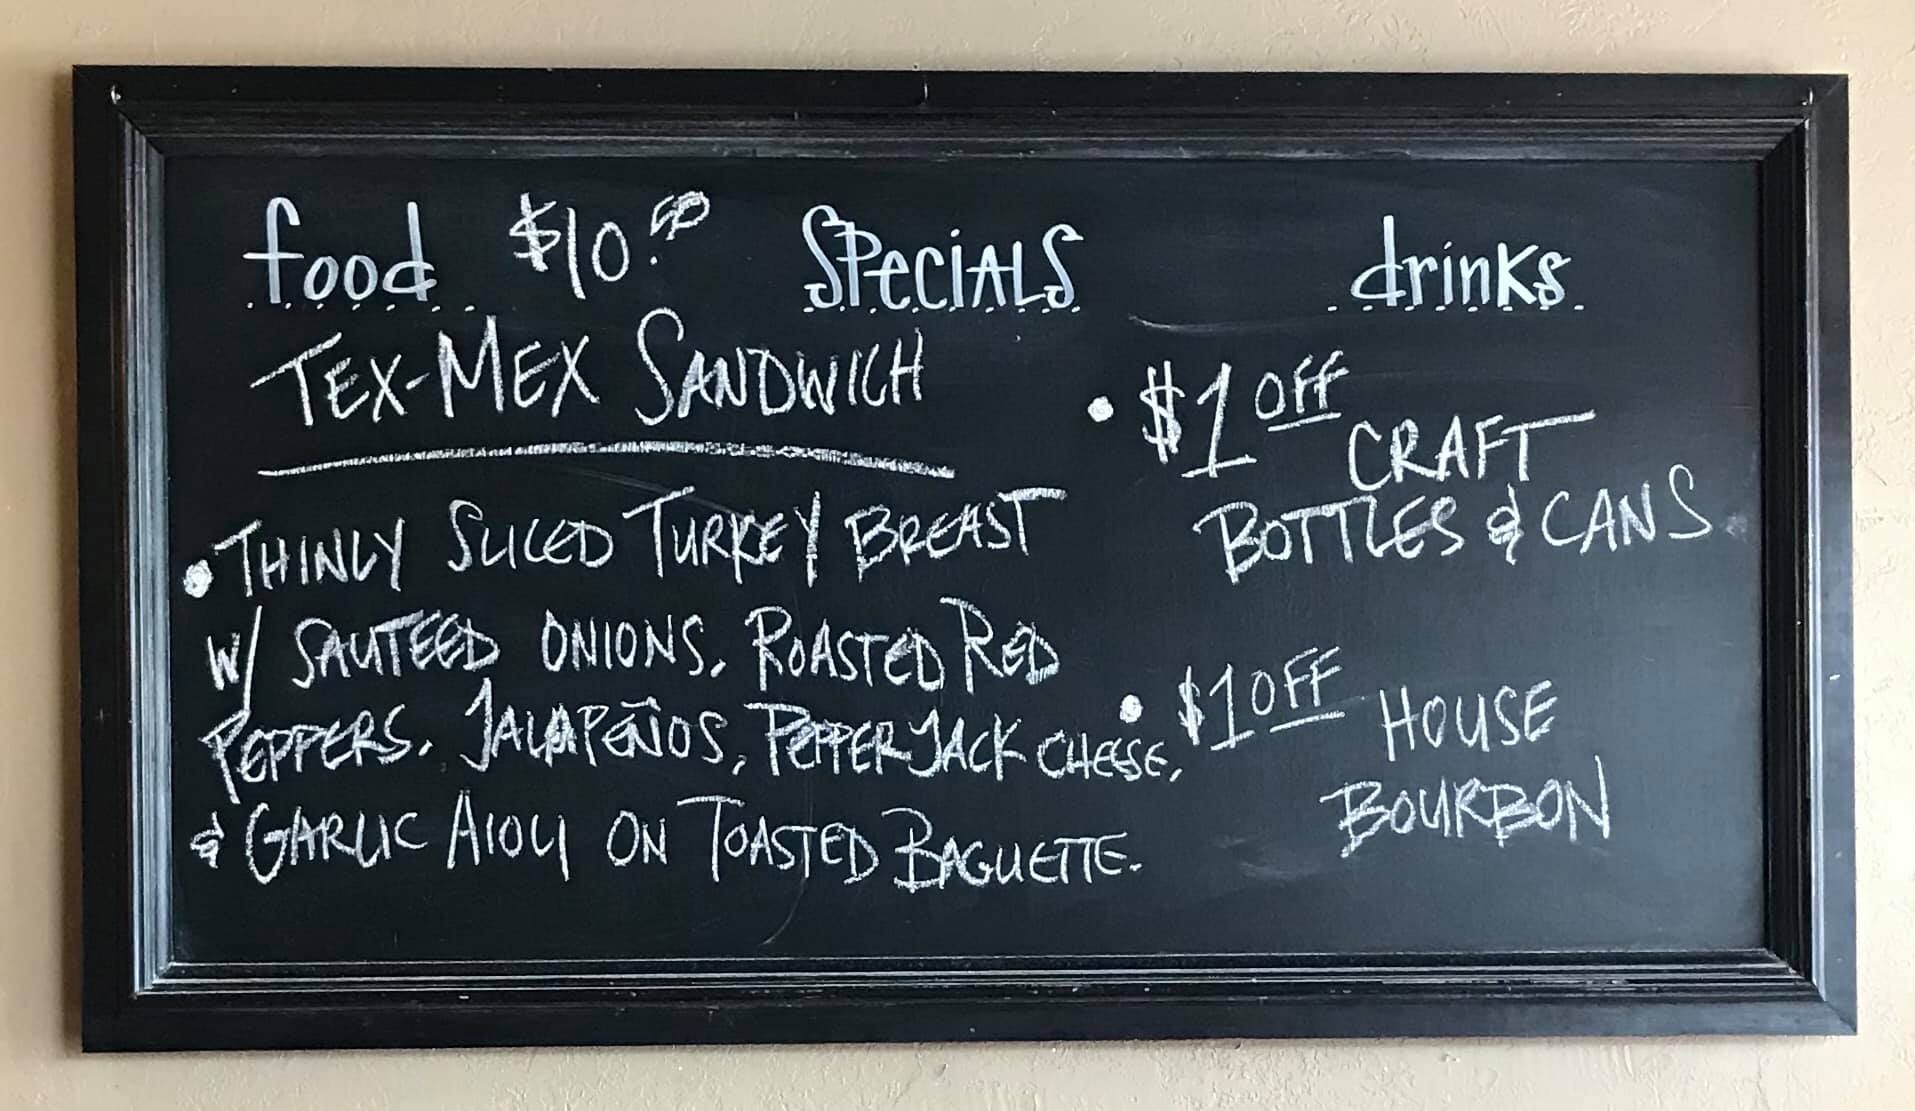 food $10.50 SPeciALS drinks
TEX-MEX SANDWICH
• THINLY SLICED TURKEY BREAST
W/ SAUTEED ONIONS, ROASTED RED
PEPPERS, JALAPEÑOS, PEPPER JACK CHEESE,
& GARLIC AIOLI ON TOASTED BAGUETTE.
• $1 OFF
CRAFT
BOTTLES & CANS
• $1 OFF HOUSE
BOURBON